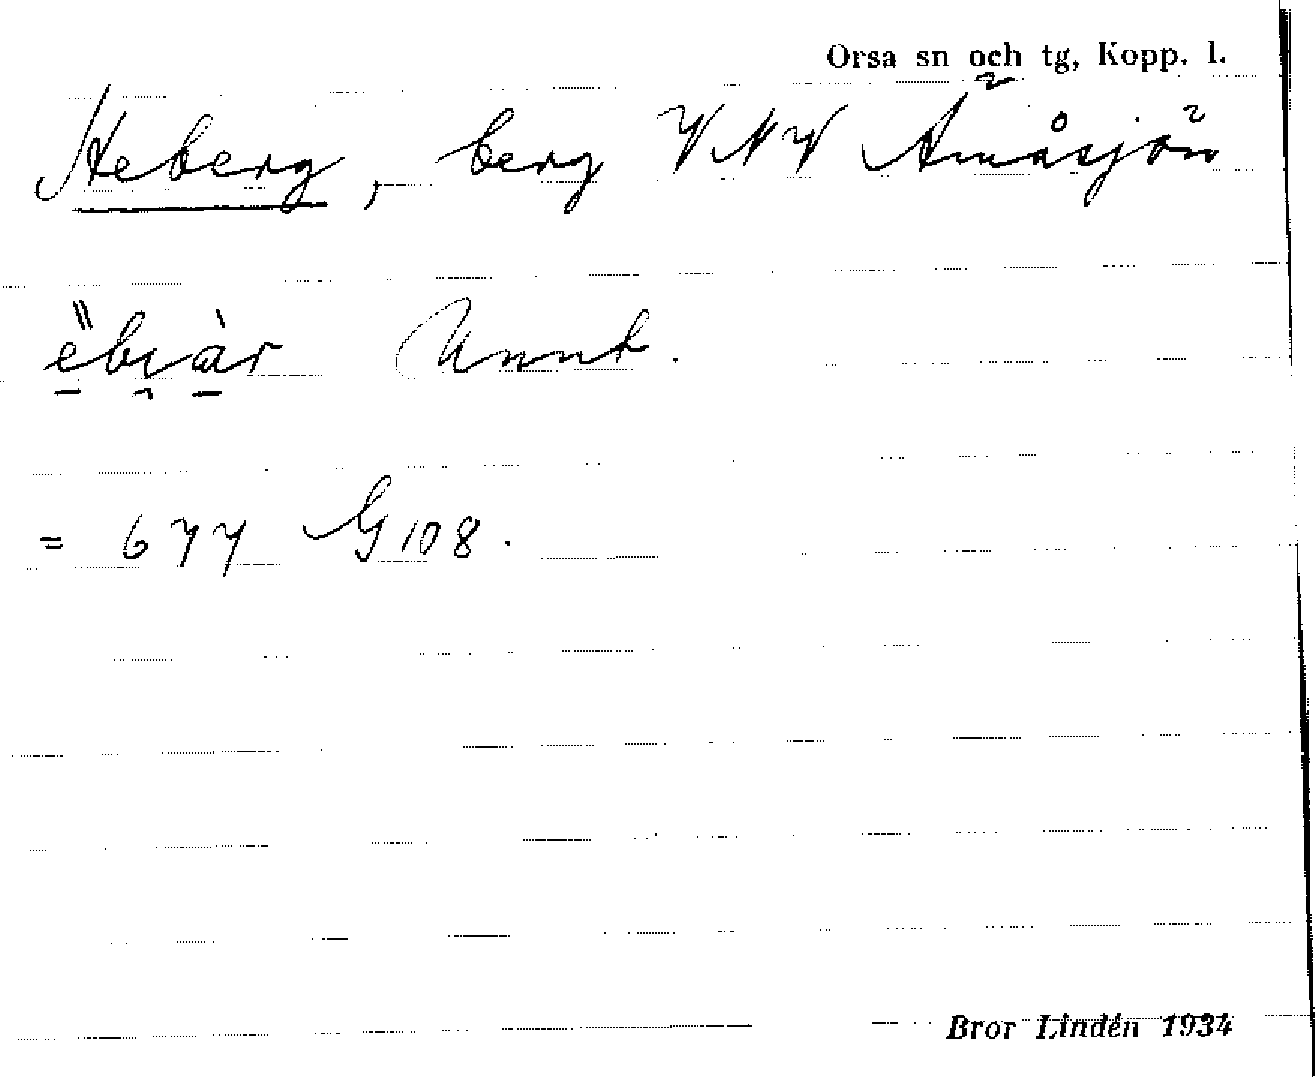 Orsa sn och tg, Kopp. l.
Heberg, berg VNV Ämåsjön
Unnt.
= 677 G 108.
Bror Lindén 1934